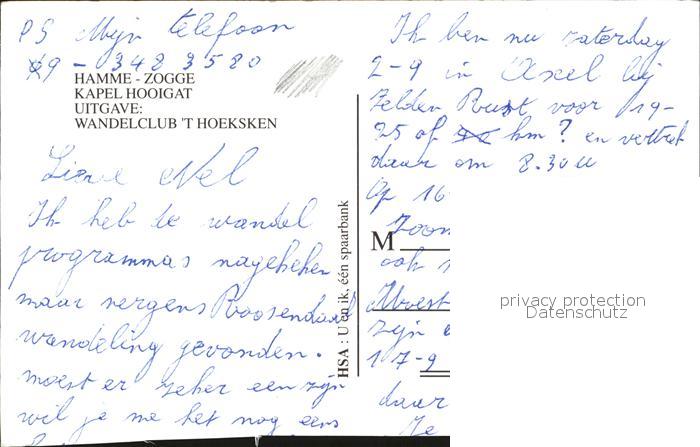 PS Mijn telefoon
09 - 348 3580
HAMME - ZOGGE
KAPEL HOOIGAT
UITGAVE:
WANDELCLUB 'T HOEKSKEN
Lieve Nel
Ik heb te wandel
programmas nagekeken
maar nergens Roosendaal
wandeling gevonden.
moest er zeker een zijn
wil je me het nog eens
HSA : U en ik, één spaarbank
Ik ben nu zaterdag
2-9 in Axel bij
Zelden Rust voor 19-
25 of km? en vertrek
daar om 8.30 u
Op 16
Zoom
M
ook
Moest
zijn
17-9
daar
Je
privacy protection
Datenschutz